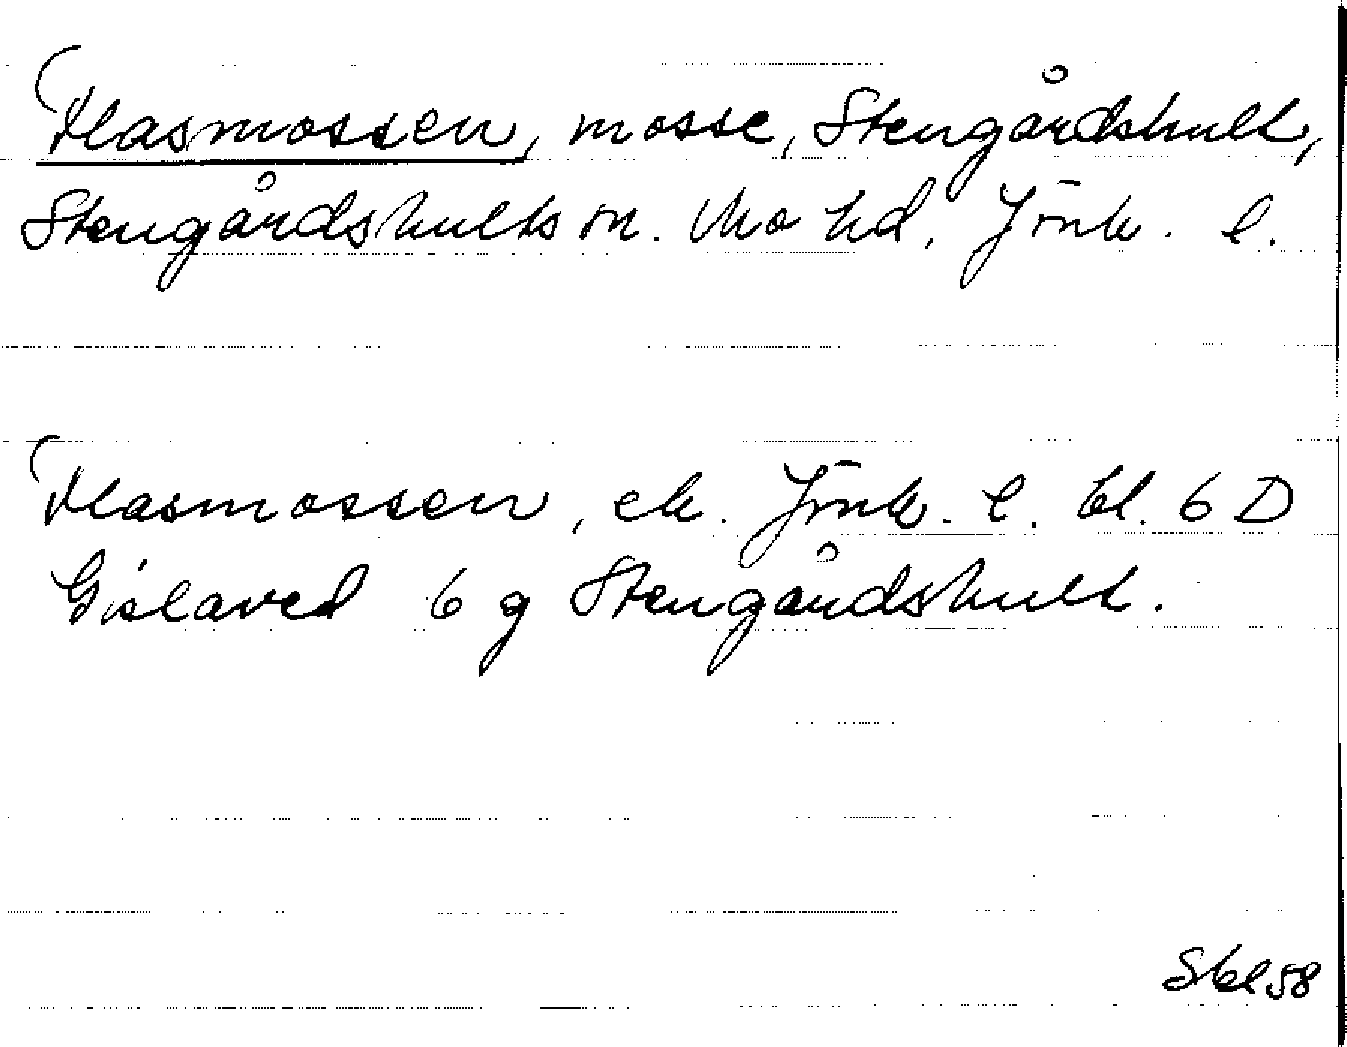 Klasmossen, mosse, Stengårdshult,
Stengårdshults sn. Mo hd. Jönk. l.
Klasmossen, ek. Jönk. l. bl. 6 D
Gislaved 6 g Stengårdshult.
Sbl 58